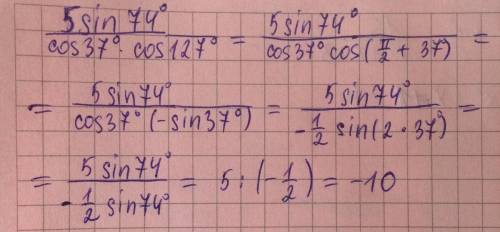 5sin74° / cos37° · cos127° = 5sin74° / cos37° cos(π/2 + 37°) =
= 5sin74° / cos37° (-sin37°) = 5sin74° / -1/2 sin(2·37°) =
= 5sin74° / -1/2 sin74° = 5 : (-1/2) = -10